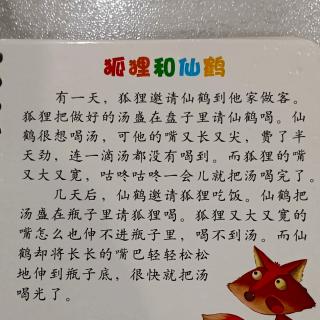 狐狸和仙鹤
有一天，狐狸邀请仙鹤到他家做客。
狐狸把做好的汤盛在盘子里请仙鹤喝。仙
鹤很想喝汤，可他的嘴又长又尖，费了半
天劲，连一滴汤都没有喝到。而狐狸的嘴
又大又宽，咕咚咕咚一会儿就把汤喝完了。
几天后，仙鹤邀请狐狸吃饭。仙鹤把
汤盛在瓶子里请狐狸喝。狐狸又大又宽的
嘴怎么也伸不进瓶子里，喝不到汤。而仙
鹤却将长长的嘴巴轻轻松松
地伸到瓶子底，很快就把汤
喝光了。